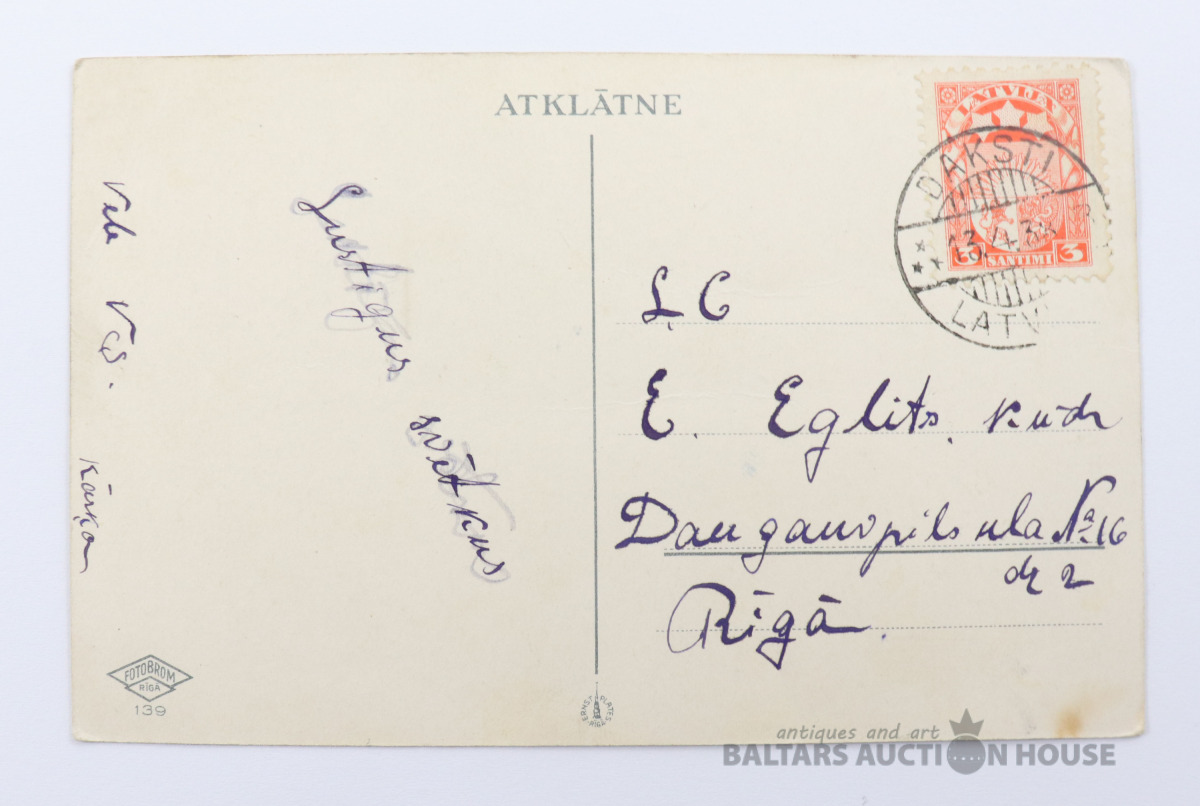 ATKLĀTNE
LATVIJEA
3 SANTIMI 3
DAKSTI
LATV
Lustīgus
svētkus
Vēlē
Kārka
L. C
E. Eglits. kudz
Daugauvpils ula № 16
dz 2
Rīgā.
FOTOBROM
RĪGĀ
139
ERNSTA PLATES
RĪGĀ
antiques and art
BALTARS AUCTION HOUSE